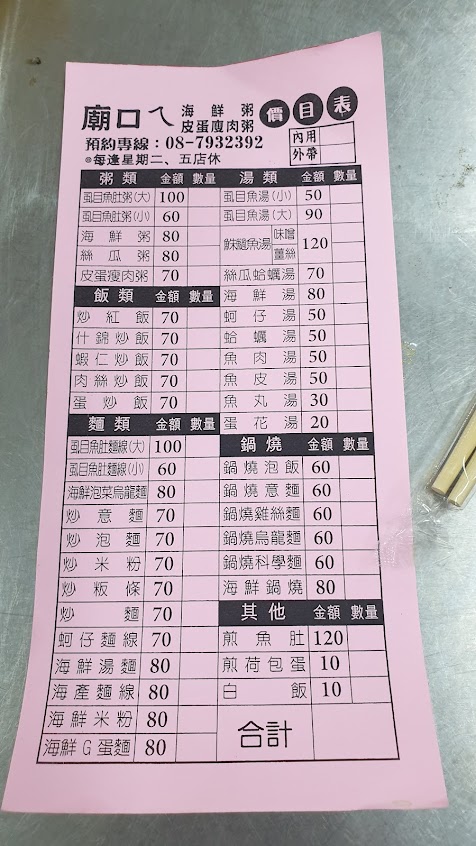 廟口ㄟ 海鮮粥 皮蛋瘦肉粥 價目表
預約專線:08-7932392
⊙每逢星期二、五店休
內用
外帶
粥類 金額 數量
虱目魚肚粥(大) 100
虱目魚肚粥(小) 60
海鮮粥 80
絲瓜粥 80
皮蛋瘦肉粥 70
飯類 金額 數量
炒紅飯 70
什錦炒飯 70
蝦仁炒飯 70
肉絲炒飯 70
蛋炒飯 70
麵類 金額 數量
虱目魚肚麵線(大) 100
虱目魚肚麵線(小) 60
海鮮泡菜烏龍麵 80
炒意麵 70
炒泡麵 70
炒米粉 70
炒粄條 70
炒麵 70
蚵仔麵線 70
海鮮湯麵 80
海產麵線 80
海鮮米粉 80
海鮮G蛋麵 80
湯類 金額 數量
虱目魚湯(小) 50
虱目魚湯(大) 90
魚湯 味噌 薑絲 120
絲瓜蛤蠣湯 70
海鮮湯 80
蚵仔湯 50
蛤蠣湯 50
魚肉湯 50
魚皮湯 50
魚丸湯 30
蛋花湯 20
鍋燒 金額 數量
鍋燒泡飯 60
鍋燒意麵 60
鍋燒雞絲麵 60
鍋燒烏龍麵 60
鍋燒科學麵 60
海鮮鍋燒 80
其他 金額 數量
煎魚肚 120
煎荷包蛋 10
白飯 10
合計